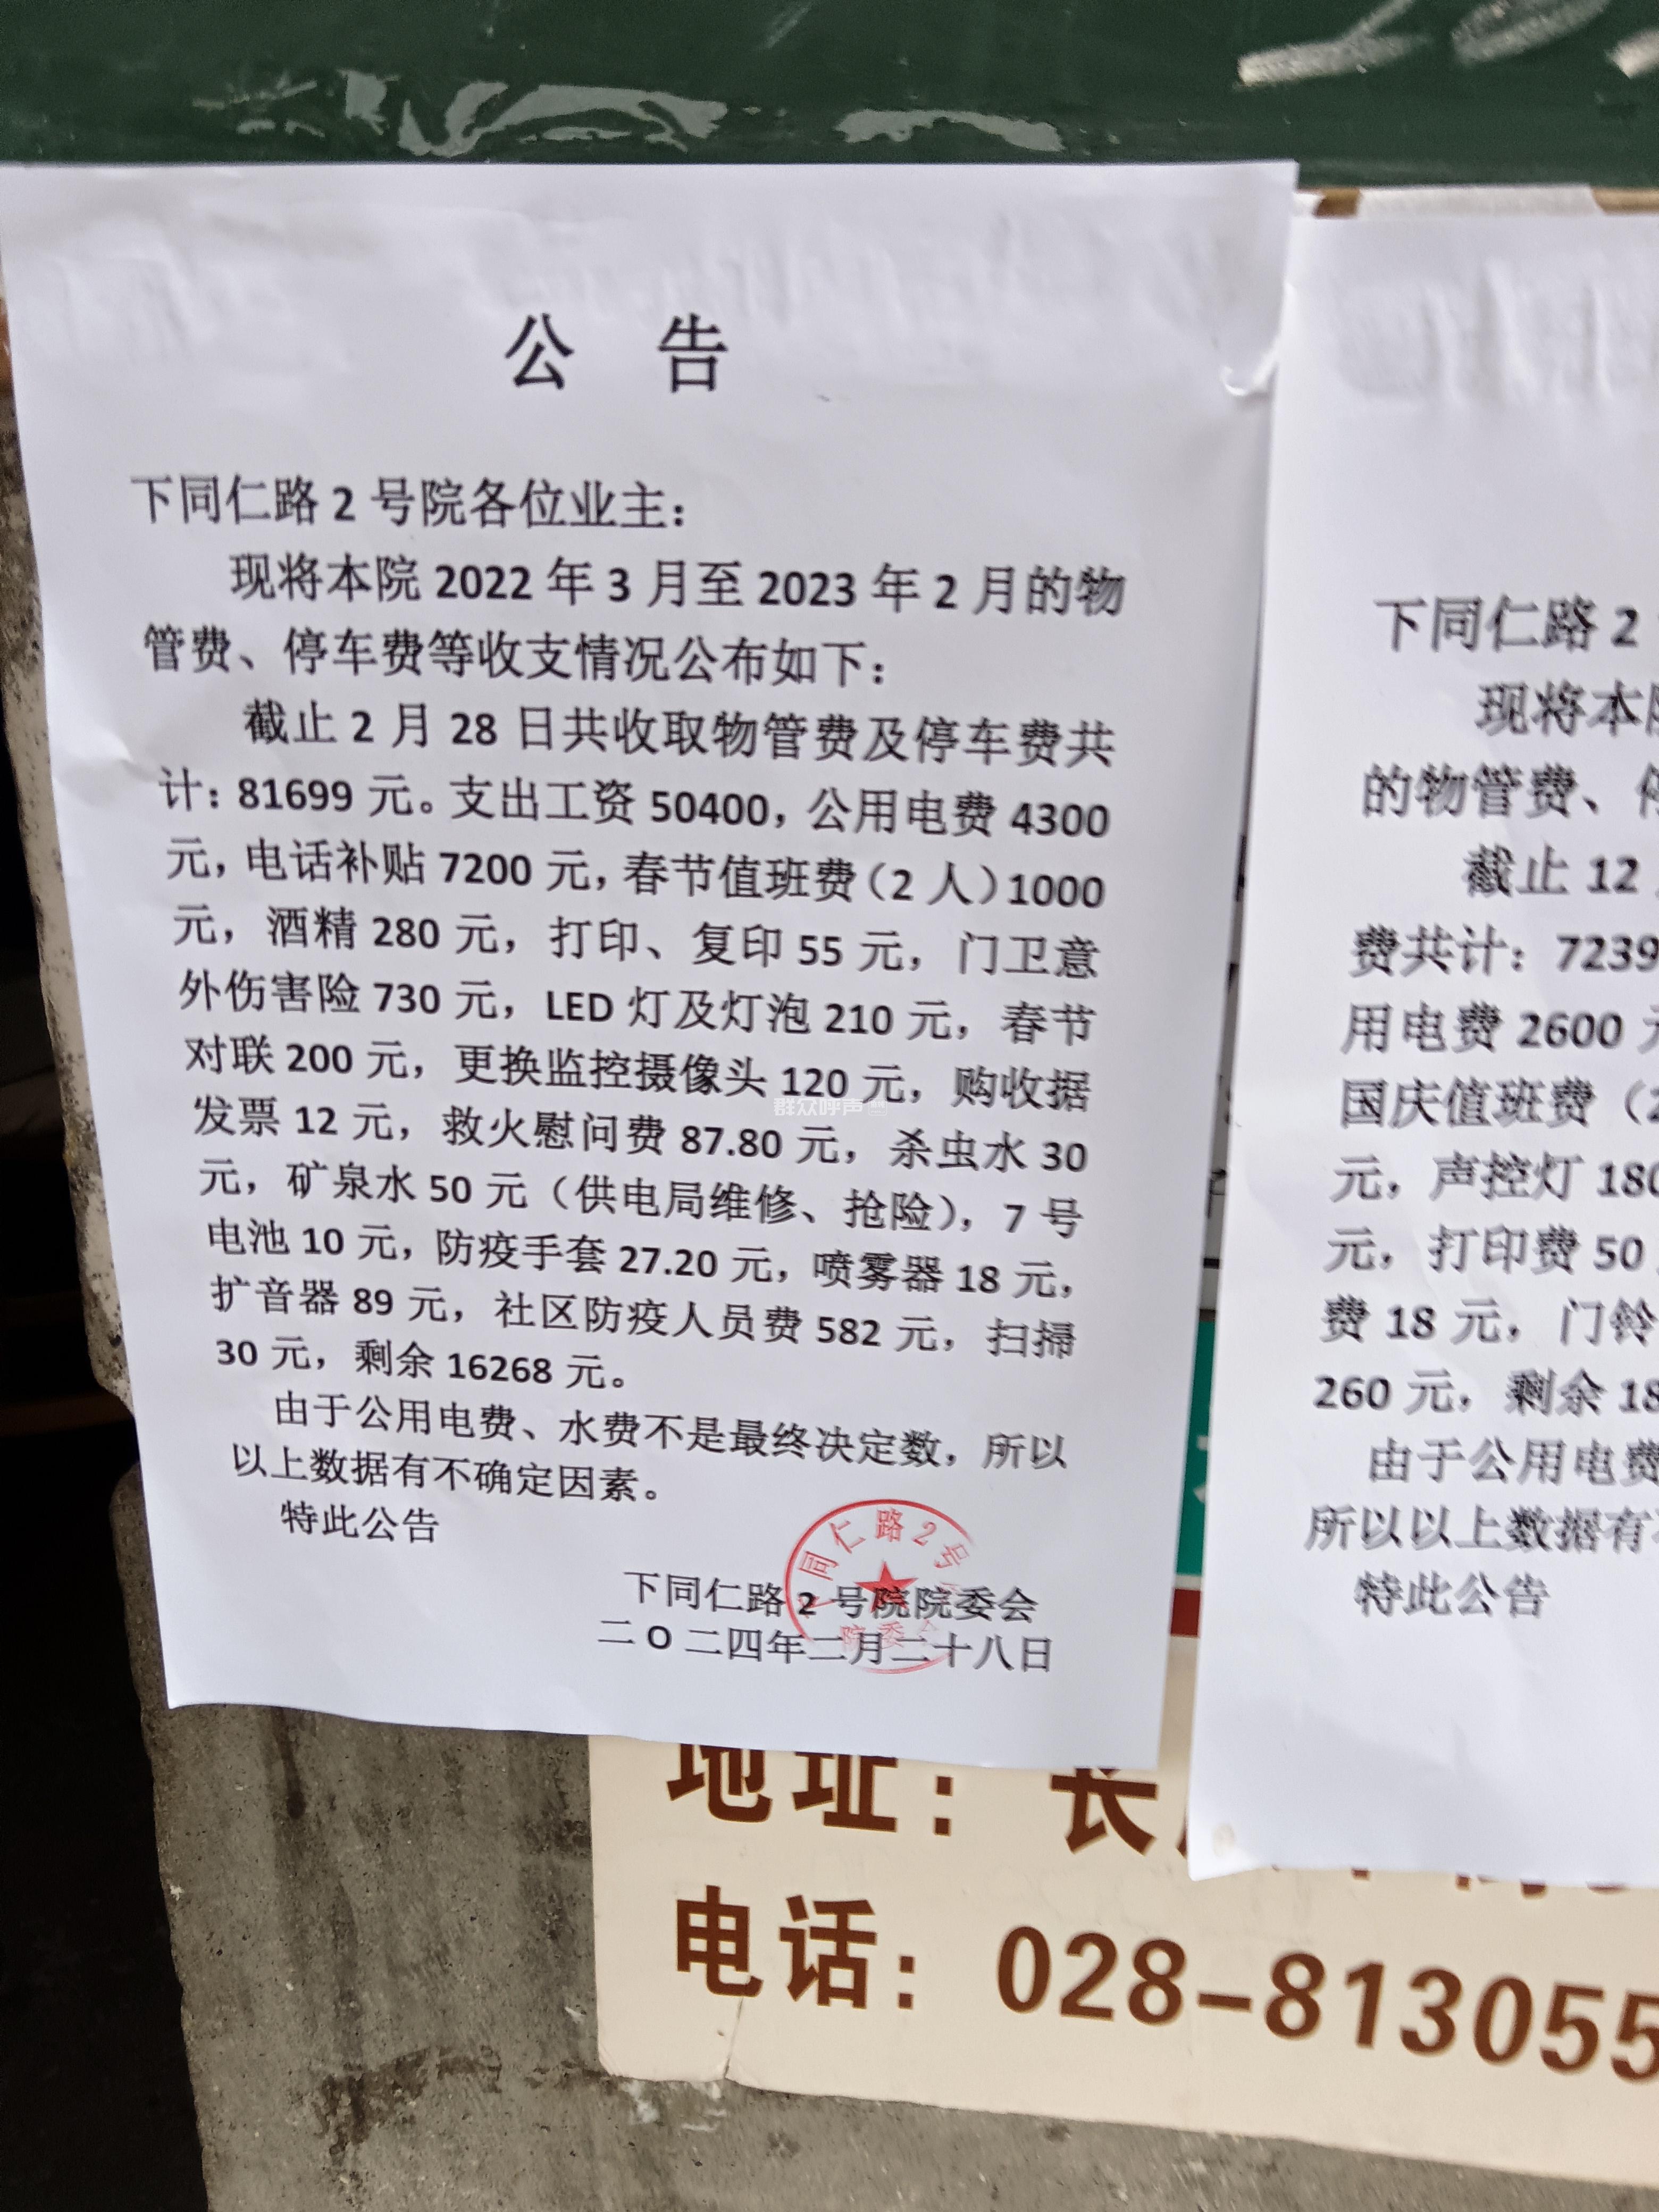 公 告
下同仁路 2 号院各位业主：
现将本院 2022 年 3 月至 2023 年 2 月的物
管费、停车费等收支情况公布如下：
截止 2 月 28 日共收取物管费及停车费共
计：81699 元。支出工资 50400，公用电费 4300
元，电话补贴 7200 元，春节值班费（2 人）1000
元，酒精 280 元，打印、复印 55 元，门卫意
外伤害险 730 元，LED 灯及灯泡 210 元，春节
对联 200 元，更换监控摄像头 120 元，购收据
发票 12 元，救火慰问费 87.80 元，杀虫水 30
元，矿泉水 50 元（供电局维修、抢险），7 号
电池 10 元，防疫手套 27.20 元，喷雾器 18 元，
扩音器 89 元，社区防疫人员费 582 元，扫掃
30 元，剩余 16268 元。
由于公用电费、水费不是最终决定数，所以
以上数据有不确定因素。
特此公告
下同仁路 2 号院院委会
二〇二四年二月二十八日
同仁路2号
院委
群众呼声
下同仁路 2
现将本
的物管费、
截止 12
费共计：7239
用电费 2600
国庆值班费（2
元，声控灯 180
元，打印费 50
费 18 元，门铃
260 元，剩余 18
由于公用电费
所以以上数据有
特此公告
地址：长
电话：028-813055